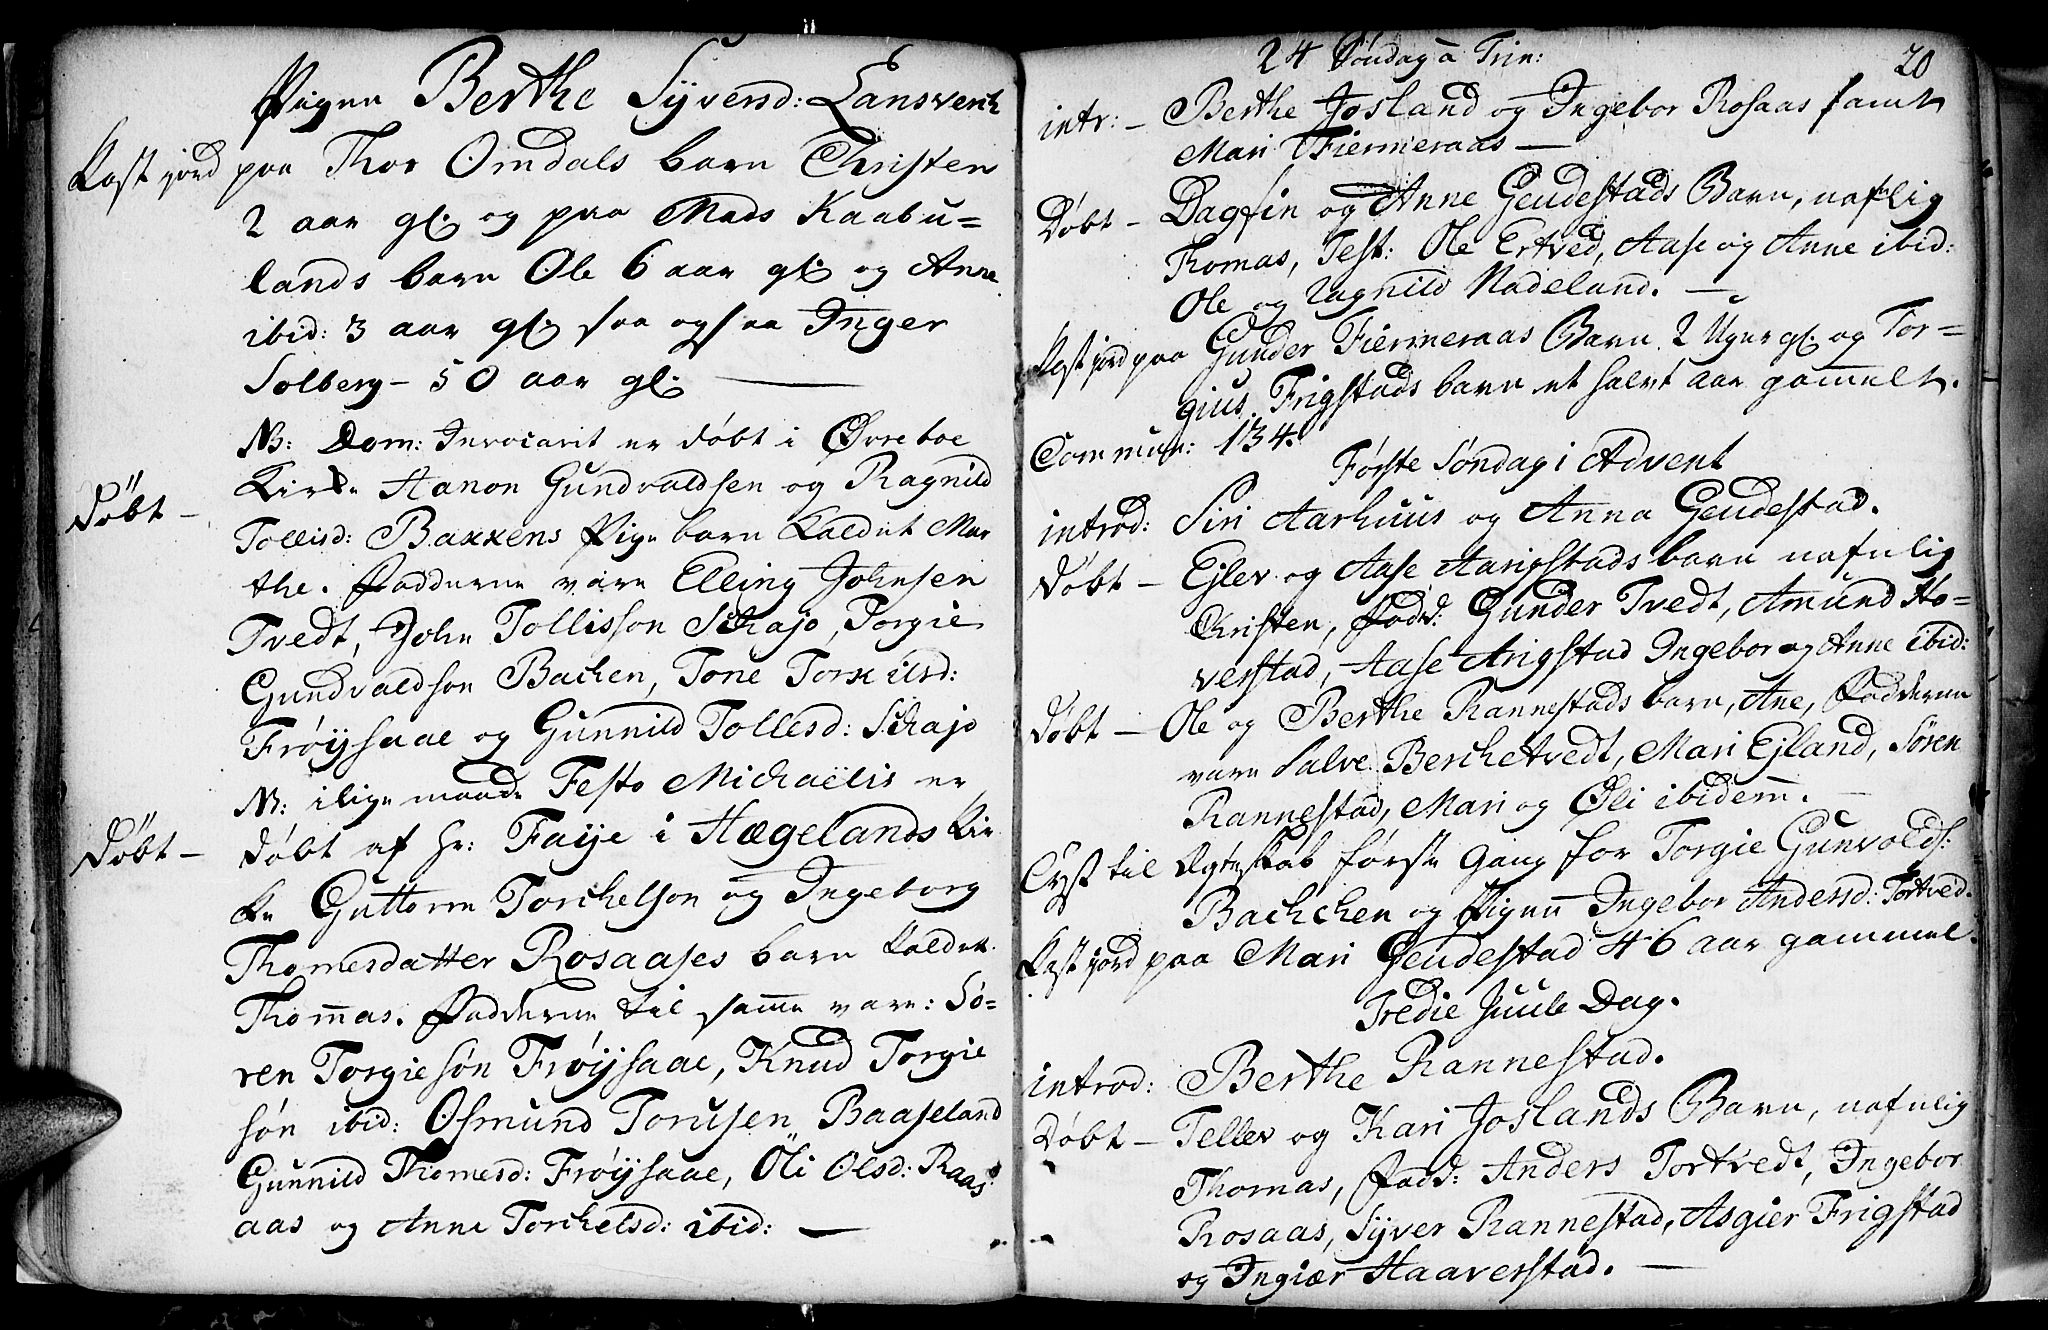 Pigen Berthe Syversd: Lansverk
Kast jord paa Thor Omdals barn Christen
2 aar gl: og paa Mads Kaabu=
lands barn Ole 6 aar gl: og Anne
ibid: 3 aar gl: saa ogsaa Inger
Solberg - 50 aar gl:
NB: Dom: Invocavit er døbt i Øvreboe
Døbt - Kirke Aanon Gundvaldsen og Ragnild
Tollisd: Baxxens Pige barn kaldet Mar
the. Fadderne vare Elling Johnsen
Tvedt, John Tollisson Schajo, Torgie
Gundvaldson Bachen, Tone Torxilsd:
Frøysaae og Gunnild Tollesd: Schajo
NB: i lige maade Festo Michaëlis er
Døbt - døbt af Hr: Faije i Hægelands Kir
ke Guttorm Torchelson og Ingeborg
Thomesdatter Rosaases barn kaldet
Thom̅as. Fadderne til sam̅e vare: Sø=
ren Torgiesøn Frøysaae, Knud Torgie
søn ibid: Osmund Torusen Baaseland
Gunnild Thomesd: Frøysaae, Öli Olsd: Raas
aas og Anne Torchelsd: ibid:
20
24 Søndag à Trin:
intr: - Berthe Josland og Ingebor Rosaas samt
Mari Fiermeraas
Døbt - Dagfin og Anne Geudestads Barn, nafnlig
Thomas, Test: Ole Ertved, Aase og Anne ibid:
Ole og Ragnild Nadeland.
Kast jord paa Gunder Fiermeraas Barn 2 Uger gl: og Tor=
gius Frigstads barn et halvt aar gam̅elt.
Commun: 134.
Første Søndag i Advent
introd: Siri Aarhuus og Anna Geudestad.
Døbt - Ejlev og Aase Aarigstads barn nafnlig
Christen, Fadd: Gunder Tvedt, Amund Ho=
verstad, Aase Arigstad Ingebor og Anne ibid:
Døbt - Ole og Berthe Rannestads barn, Ane, Fadderne
vare Salve Berchetvedt, Mari Ejland, Søren
Rannestad, Mari og Øli ibidem̅.
Lyst til Ægteskab første gang for Torgie Gunvolds:
Bachchen og Pigen Ingebor Andersd: Tortved.
Kast jord paa Mari Geudestad 46 aar gammel.
Tredie Juule Dag.
introd: Berthe Rannestad.
Døbt - Tellev og Kari Joslands Barn, nafnlig
Thomas, Fadd: Anders Tortvedt, Ingebor
Rosaas, Syver Rannestad, Asgier Frigstad
og Ingiær Haaverstad.